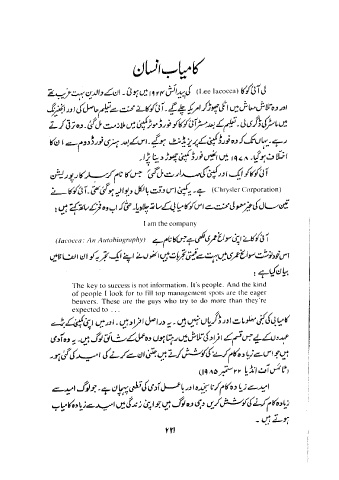 کامیاب انسان
لی آئی کوکا (Lee Iacocca) کی پیدائش ۱۹۲۴ میں ہوئی۔ ان کے والدین بہت غریب تھے
اور وہ تلاش معاش میں اٹلی چھوڑ کر امریکہ چلے گئے۔ آئی کوکا نے محنت سے تعلیم حاصل کی اور انجنیئرنگ
میں ماسٹر کی ڈگری لی۔ تعلیم کے بعد مسٹر آئی کوکا کو فورڈ موٹر کمپنی میں ملازمت مل گئی۔ وہ ترقی کرتے
رہے۔ یہاں تک کہ وہ فورڈ کمپنی کے پریزیڈنٹ ہو گئے۔ اس کے بعد ہنری فورڈ دوم سے ان کا
اختلاف ہو گیا۔ ۱۹۷۸ میں انھیں فورڈ کمپنی چھوڑ دینا پڑا۔
آئی کوکا کو ایک اور کمپنی کی صدارت مل گئی جس کا نام کرسلر کارپوریشن
(Chrysler Corporation) ہے۔ یہ کمپنی اس وقت بالکل دیوالیہ ہو گئی تھی۔ آئی کوکا نے
تین سال کی غیر معمولی محنت سے اس کو کامیابی کے ساتھ چلا دیا۔ حتی کہ اب وہ فخر کے ساتھ کہتے ہیں :
I am the company
آئی کوکا نے اپنی سوانح عمری لکھی ہے جس کا نام ہے (Iacocca: An Autobiography)
اس خود نوشت سوانح عمری میں بہت سے قیمتی تجربات ہیں انھوں نے اپنے ایک تجربہ کو ان الفاظ میں
بیان کیا ہے :
The key to success is not information. It's people. And the kind
of people I look for to fill top management spots are the eager
beavers. These are the guys who try to do more than they're
expected to . . .
کامیابی کی کنجی معلومات اور ڈگریاں نہیں ہیں۔ یہ دراصل افراد ہیں۔ اور میں اپنی کمپنی کے بڑے
عہدوں کے لیے جس قسم کے افراد کی تلاش میں رہتا ہوں وہ عمل کے شائق لوگ ہیں۔ یہ وہ آدمی
ہیں جو اس سے زیادہ کام کرنے کی کوشش کرتے ہیں جتنی ان سے کرنے کی امید کی گئی ہو۔
(ٹائمس آف انڈیا ۲۲ ستمبر ۱۹۸۵)
امید سے زیادہ کام کرنا سنجیدہ اور باعمل آدمی کی قطعی پہچان ہے۔ جو لوگ امید سے
زیادہ کام کرنے کی کوشش کریں وہی وہ لوگ ہیں جو اپنی زندگی میں امید سے زیادہ کامیاب
ہوتے ہیں۔
۲۲۱